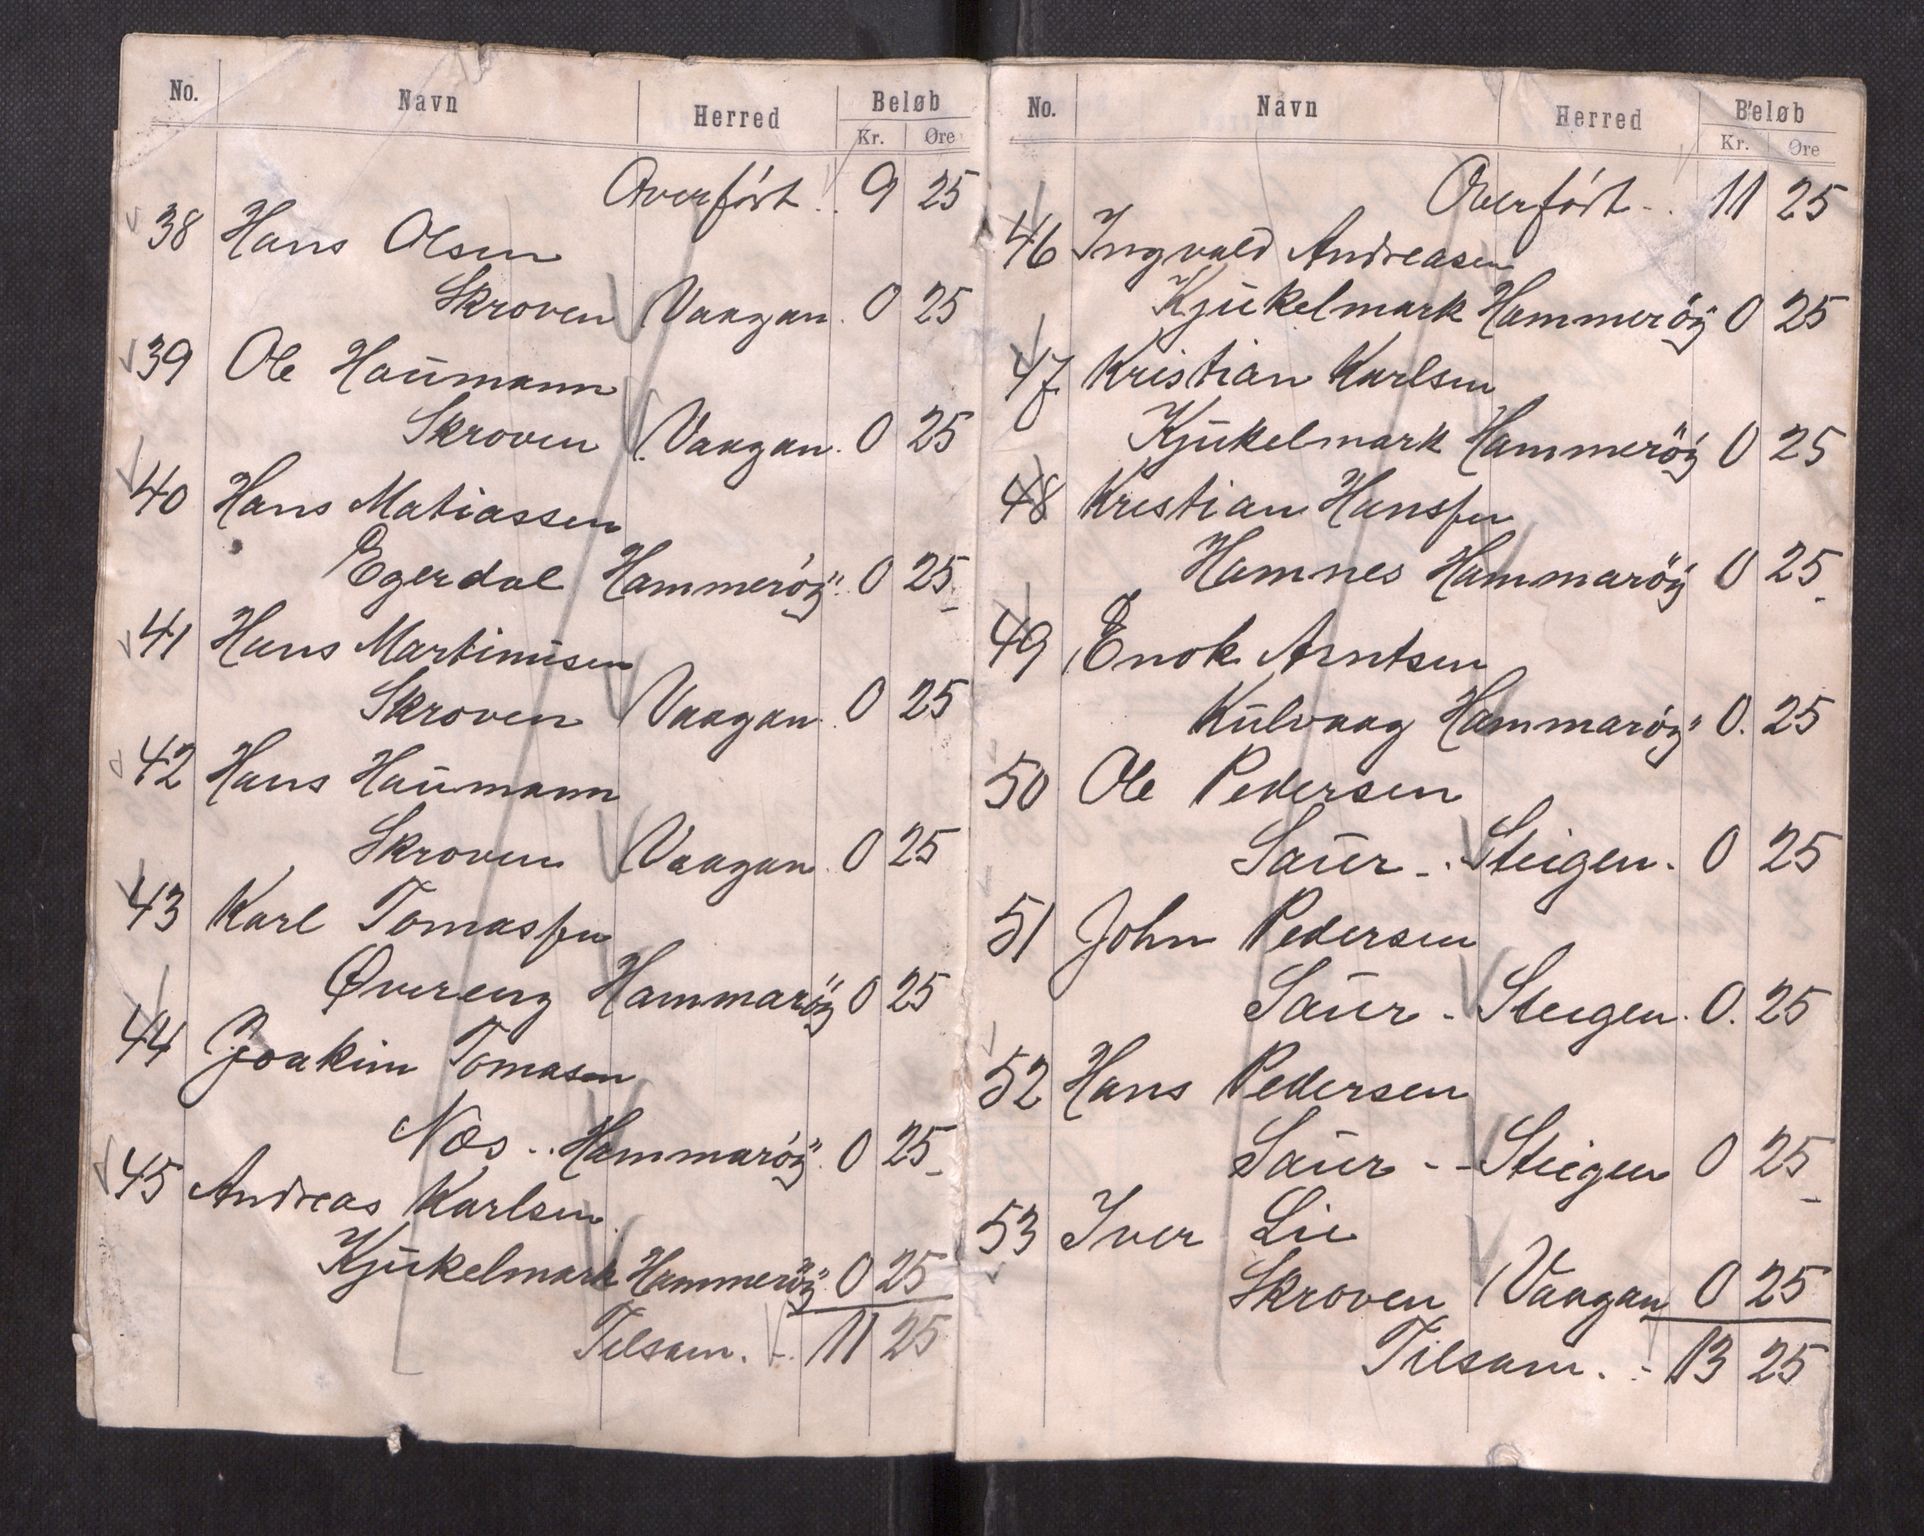 No. Navn Herred Beløb
Kr. Øre
Overført . . 9 25
38 Hans Olsen
Skroven Vaagan. 0 25
39 Ole Haŭmann
Skroven Vaagan. 0 25
40 Hans Matiassen
Egerdal Hammeröÿ. 0 25
41 Hans Martinŭsen
Skroven Vaagan. 0 25
42 Hans Haŭmann
Skroven Vaagan. 0 25
43 Karl Tomassen
Øvereng Hammaröÿ 0 25
44 Joakim Tomasen
Nes . . Hammaröÿ. 0 25
45 Andreas Karlsen.
Kjŭkelmark Hammeröÿ. 0 25
Tilsam. - . 11 25
No. Navn Herred Beløb
Kr. Øre
Overført - . 11 25
46 Ingvald Andreasen
Kjŭkelmark Hammeröÿ 0 25
47 Kristian Karlsen
Kjŭkelmark Hammeröÿ 0 25
48 Kristian Hanssen
Hamnes Hammaröÿ 0 25
49 Enok Arntsen
Kŭlvaag Hammaröÿ 0. 25
50 Ole Pedersen
Saŭr - . Steigen. 0 25
51 John Pedersen
Saŭr - Steigen. 0. 25
52 Hans Pedersen
Saŭr - - Steigen 0 25
53 Iver Lie
Skroven Vaagan 0 25
Tilsam. - 13 25